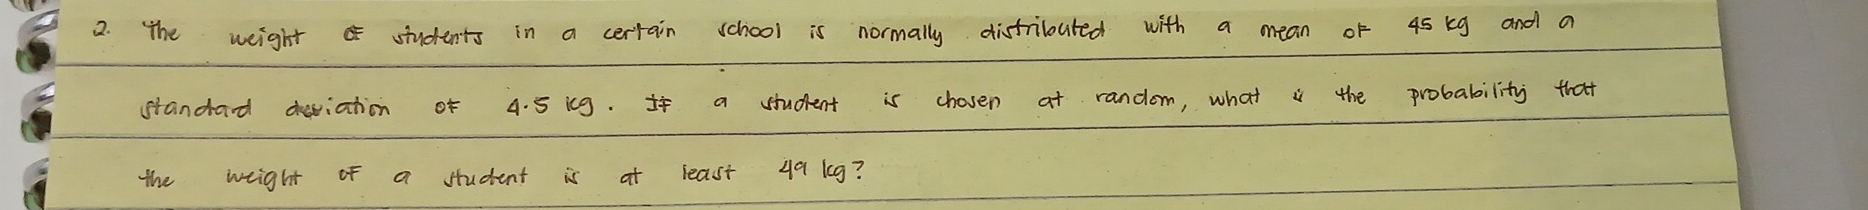 2. The weight of students in a certain school is normally distributed with a mean of 45 kg and a
standard deviation of 4.5 kg. If a student is chosen at random, what is the probability that
the weight of a student is at least 49 kg?